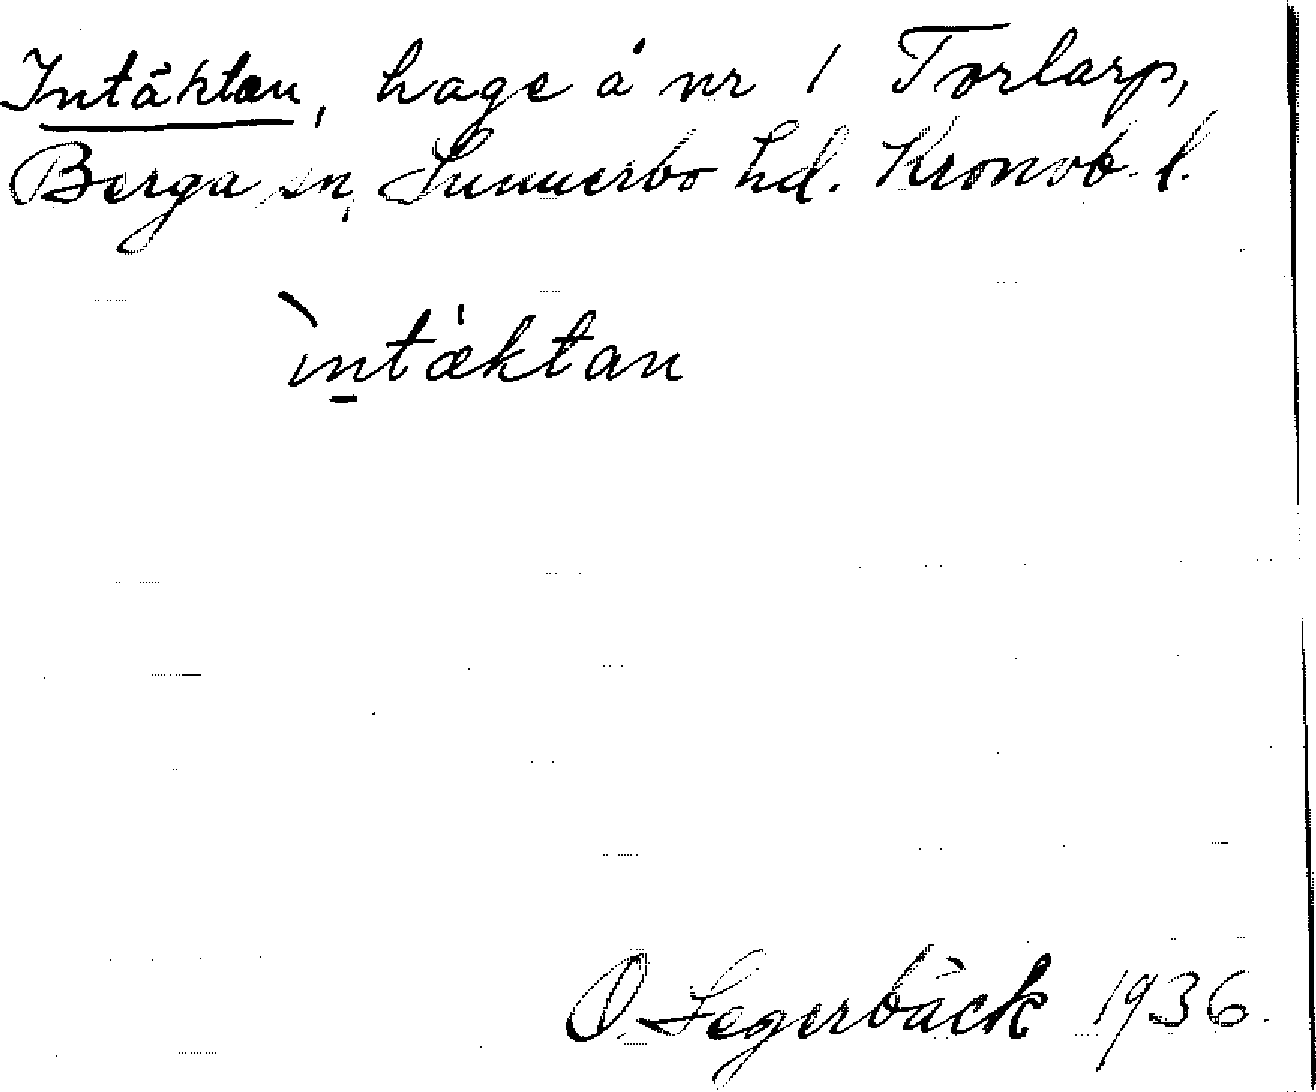 Intäktan, hage å nr 1 Torlarp,
Berga sn, Sunnerbo hd. Kronob. l.
ìntæ̍ktan
O. Segerbäck 1936.